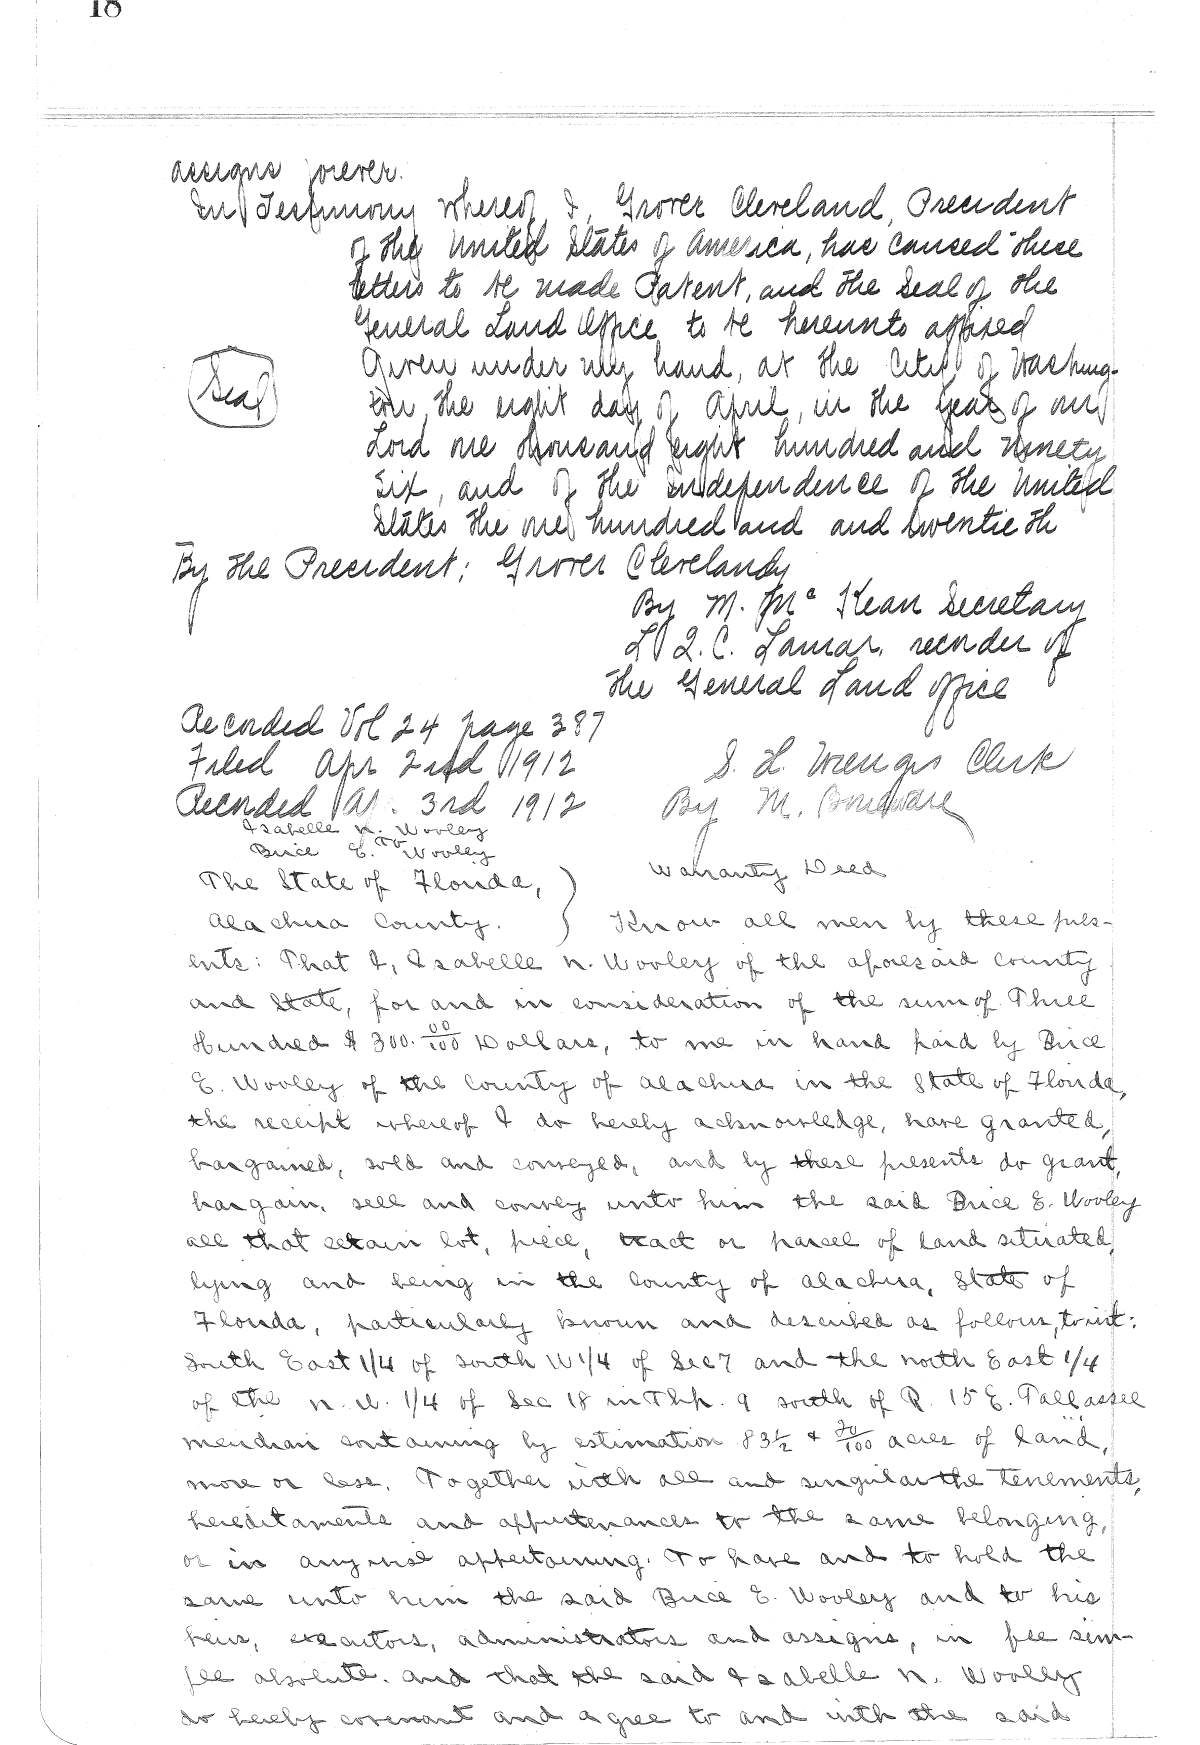 18
assigns forever.
In Testimony whereof, I, Grover Cleveland, President
of the United States of America, has caused these
letters to be made Patent, and the Seal of the
General Land Office to be hereunto affixed
Given under my hand, at the City of Washing-
Seal
ton, the eight day of April, in the year of our
Lord one thousand eight hundred and ninety
six, and of the Independence of the United
States the one hundred and and twentieth
By the President: Grover Cleveland
By M. McKean Secretary
L Q. C. Lamar, recorder of
the General Land office
Recorded Vol 24 page 387
Filed Apr 2nd 1912 S. H. Wienges Clerk
Recorded Ap. 3rd 1912 By M.
Isabelle N. Wooley
To
Brice E. Wooley
Warranty Deed
The State of Florida,
Alachua County. } Know all men by these pres-
ents: That I, Isabelle N. Wooley of the aforesaid county
and State, for and in consideration of the sum of Three
Hundred $ 300. 00/100 Dollars, to me in hand paid by Brice
E. Wooley of the County of Alachua in the State of Florida,
the receipt whereof I do hereby acknowledge, have granted,
bargained, sold and conveyed, and by these presents do grant,
bargain, sell and convey unto him the said Brice E. Wooley
all that certain lot, piece, tract or parcel of land situated,
lying and being in the County of Alachua, State of
Florida, particularly known and described as follows, to wit:
South East 1/4 of South W 1/4 of Sec 7 and the north East 1/4
of the N. W. 1/4 of Sec 18 in Thp. 9 south of R. 15 E. Tallassee
meridian containing by estimation 83 1/2 & 70/100 acres of land,
more or less. Together with all and singular the tenements,
hereditaments and appurtenances to the same belonging,
or in anywise appertaining. To have and to hold the
same unto him the said Brice E. Wooley and to his
heirs, executors, administrators and assigns, in fee sim-
ple absolute. and that the said Isabelle N. Woolly
do hereby covenant and agree to and with the said